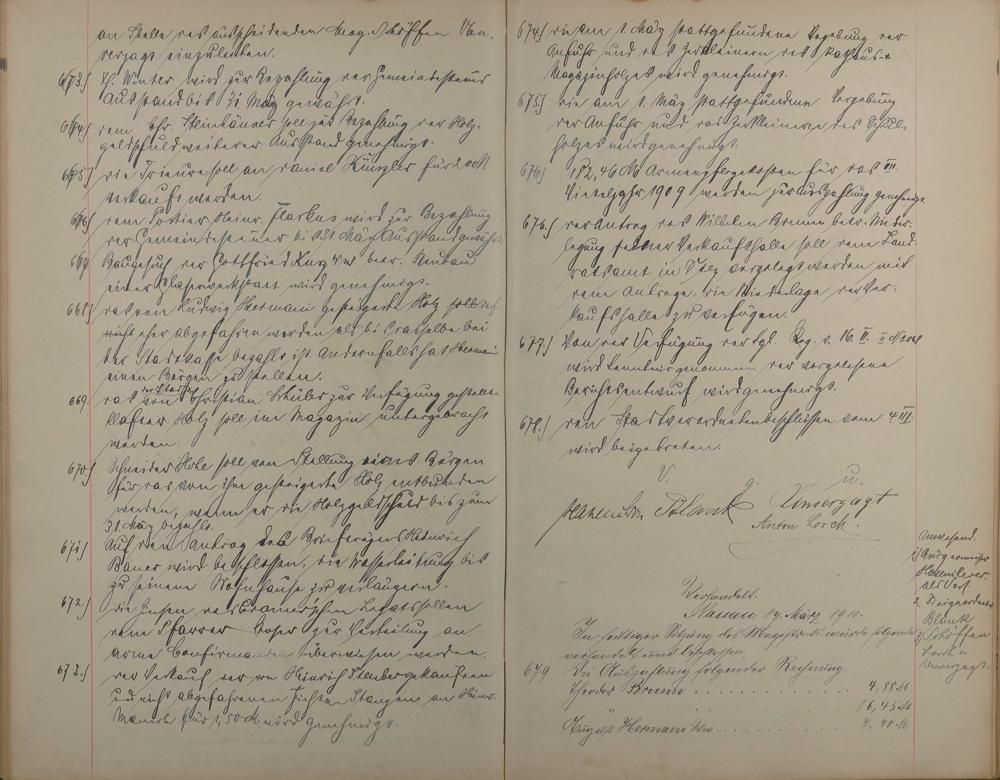 an Stelle des ausscheidenden Mag. Schöffen Un-
verzagt einzuladen.
673.) Winter wird zur Bezahlung der Gemeindesteuer
Ausstand bis 31 März gewährt.
664) dem Chr. Steinhäuser soll zur Bezahlung der Holz-
geldschuld weiterer Ausstand genehmigt.
665) die soll an Daniel Künzler für 20 M
verkauft werden.
666) dem Portier Heinr. wird zur Bezahlung
der Gemeindesteuer bis 31 März Ausstand gewährt.
667 Baugesuch der Gottfried Kurz Ww betr. Neubau
einer Glaserwerkstatt wird genehmigt.
668) das von Ludwig Hermani gesteigerte Holz soll
nicht eher abgefahren werden als bis dasselbe bei
der Stadtkasse bezahlt ist andernfalls hat Hermani
einen Bürgen zu stellen.
669. das von Christian Schuler zur Verfügung gestellte
Klafter Holz soll im Magazin untergebracht
werden.
670.) Schneider soll von Stellung eines Bürgen
für das von ihm gesteigerte Holz entbunden
werden, wenn er die Holzgeldschuld bis zum
31 März bezahlt.
671) Auf den Antrag des Briefträgers Heinrich
Bauer wird beschlossen, die Wasserleitung bis
zu seinem Wohnhause zu verlängern.
672) die Zinsen des Legats sollen
dem Pfarrer Moser zur Verteilung an
arme Confirmanden überwiesen werden.
673.) der Verkauf der von Heinrich
und nicht abgefahrenen Fichten Stangen an Heinr.
für 1,50 M wird genehmigt.
674) die am 1 März stattgefundene Vergebung der
Anfuhr und des Zerkleinern des Rathaus- u
Magazinholzes wird genehmigt.
675) die am 1. März stattgefundene Vergebung
der Anfuhr und das Zerkleinern des Schul-
holzes wird genehmigt.
676) 182,46 M Armenpflegekosten für das III.
Vierteljahr 1909 werden zur Auszahlung genehmigt.
676.) der Antrag des Wilhelm Bremm betr. Nieder-
legung der Verkaufshalle soll dem Land-
ratsamt in Diez vorgelegt werden mit
dem Antrage, die Niederlage der Ver-
kaufshalle zu verfügen.
677.) Von der Verfügung der Kgl. Reg. v. 16. II.
wird Kenntnis genommen, der vorgelesene
Berichtsentwurf wird genehmigt.
678.) den Stadtverordnetenbeschlüssen vom 4 III
wird beigetreten.
V. g. u.
Blank Unverzagt
Anton Lorch.
Anwesend
1) Bürgermeister
als Vors.
2. Beigeordneter
Blank
3) Schöffen
Lorch u
Unverzagt.
Verhandelt.
Nassau 14 März 1910.
In heutiger Sitzung des Magistrats wurde folgendes
verhandelt und beschlossen.
679 Die Auszahlung folgender Rechnung.
Theodor Bremm . . . . . . . . . . . 4,88 M
. . . . . . . . . . . 16,45 M
August Hermani Ww. . . . . . . . . . . 7,70 M